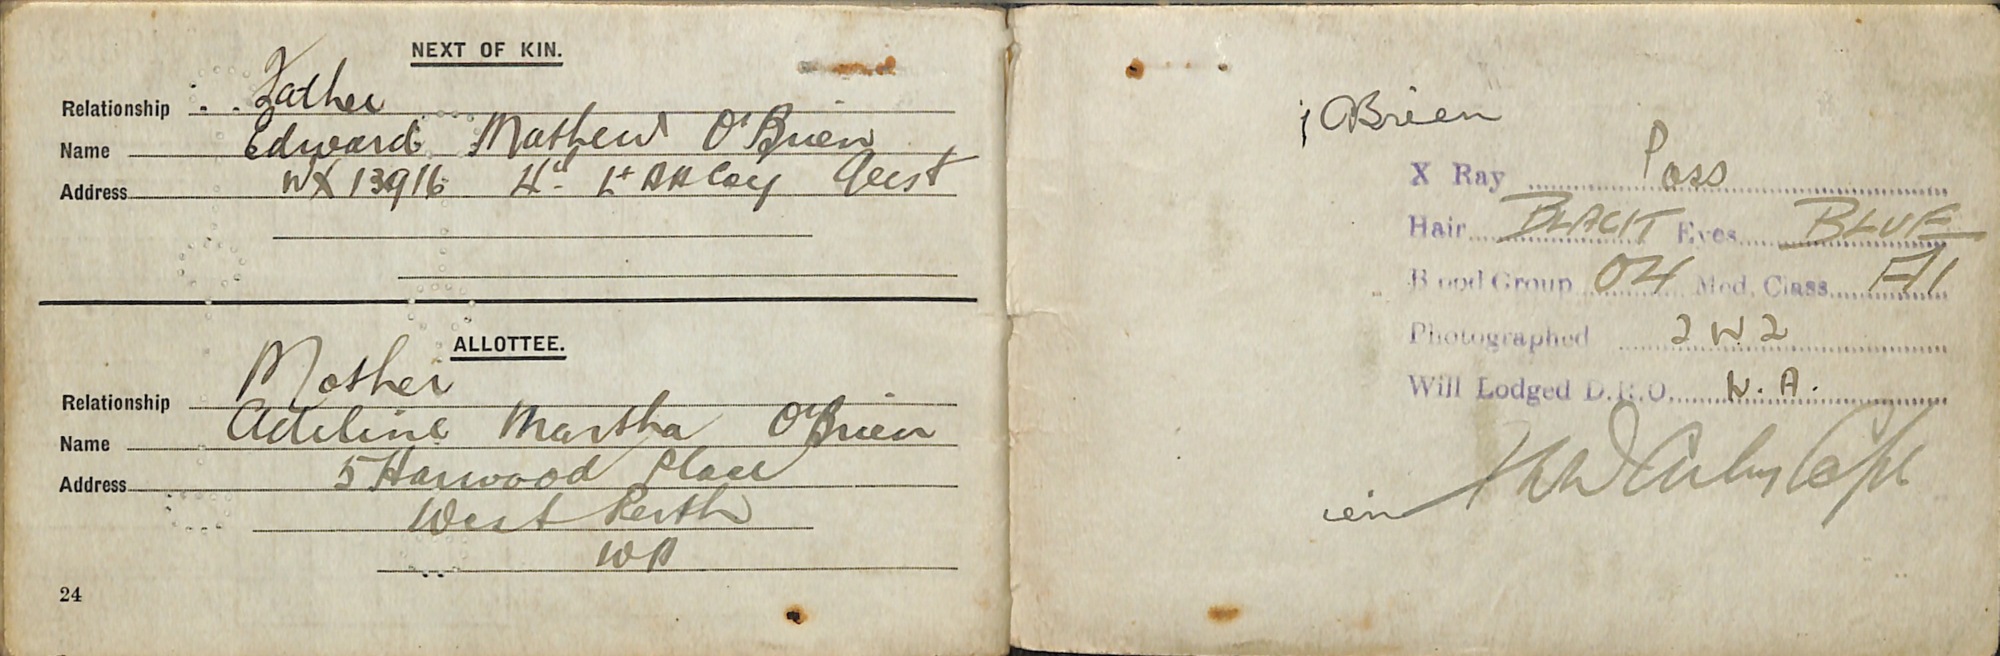 NEXT OF KIN.
Relationship Father
Name Edward Mathew O'Brien
Address WX 13916 Lt AA Coy
ALLOTTEE.
Relationship Mother
Name Adeline Martha O'Brien
Address 5 Harwood Place
West Perth
WA
24
OBrien
X Ray Pass
Hair BLACK Eyes BLUE
Blood Group O4 Med. Class A1
Photographed 2 W 2
Will Lodged D.R.O. N.A.
ien